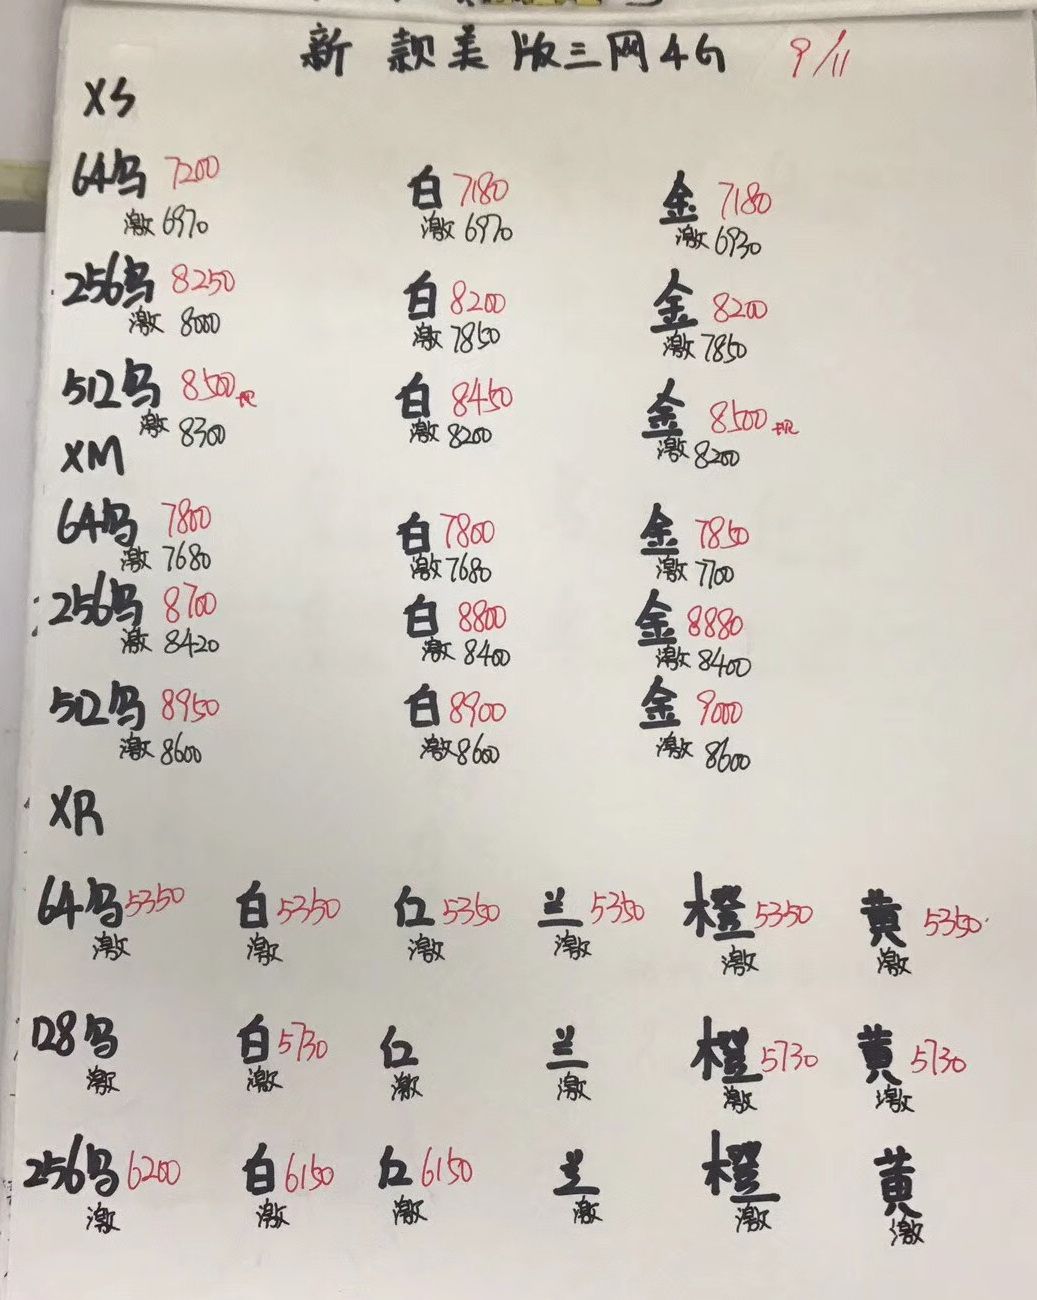 新款美版三网4G 9/11
XS
64乌 7200 白 7180 金 7180
激 6970 激 6970 激 6930
256乌 8250 白 8200 金 8200
激 8000 激 7850 激 7850
512乌 8500 白 8450 金 8500
激 8300 激 8200 激 8200
XM
64乌 7800 白 7800 金 7850
激 7680 激 7680 激 7700
256乌 8700 白 8800 金 8880
激 8420 激 8400 激 8400
512乌 8950 白 8900 金 9000
激 8600 激 8600 激 8600
XR
64乌 5350 白 5350 红 5350 兰 5350 橙 5350 黄 5350
激 激 激 激 激 激
128乌 白 5730 红 兰 橙 5730 黄 5730
激 激 激 激 激 激
256乌 6200 白 6150 红 6150 兰 橙 黄
激 激 激 激 激 激